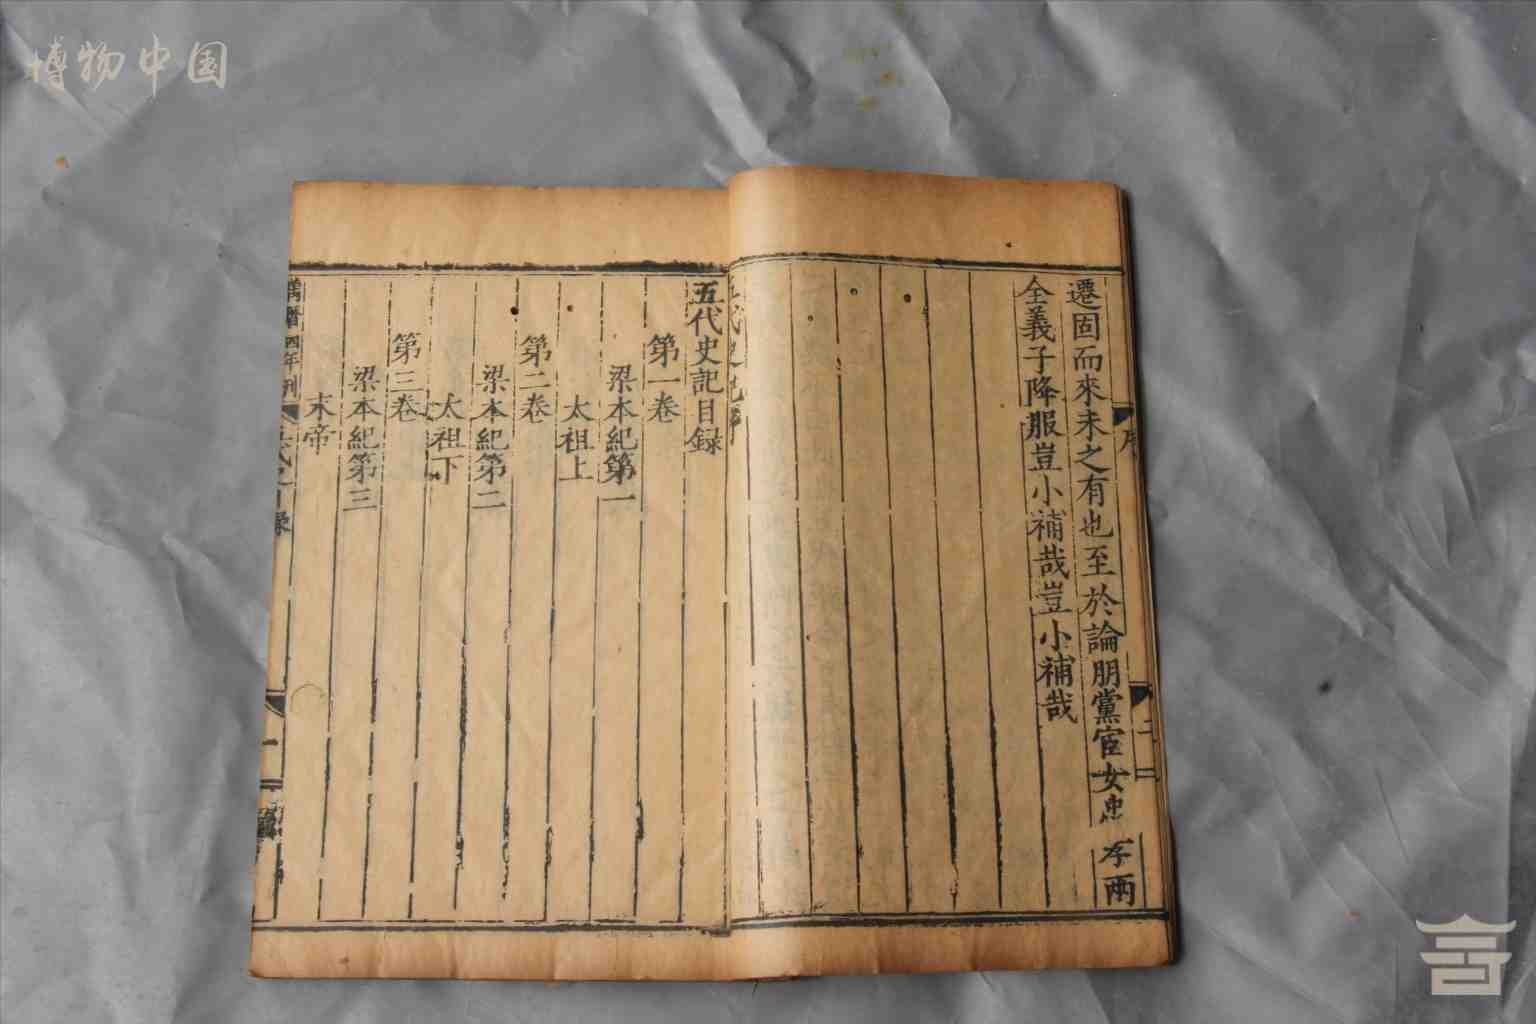 博物中国
遷固而來未之有也至於論朋黨宦女忠
存兩
全義子降服豈小補哉豈小補哉
五代史記目録
第一卷
梁本紀第一
太祖上
第二卷
梁本紀第二
太祖下
第三卷
梁本紀第三
末帝
萬曆四年刊
序
二
一